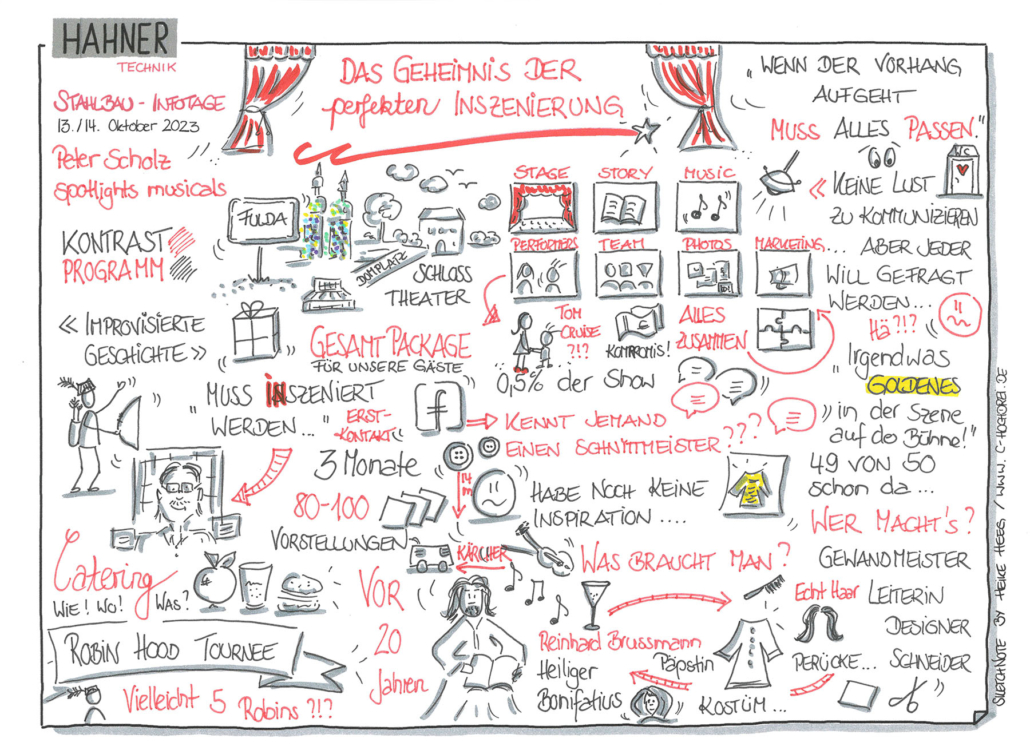 HAHNER
TECHNIK
STAHLBAU - INFOTAGE
13./14. Oktober 2023
Peter Scholz
spotlights musicals
DAS GEHEIMNIS DER
perfekten INSZENIERUNG
„WENN DER VORHANG
AUFGEHT
MUSS ALLES PASSEN."
KONTRAST
PROGRAMM
FULDA
DOMPLATZ
SCHLOSS
THEATER
STAGE
STORY
MUSIC
PERFORMERS
TEAM
PHOTOS
MARKETING...
« KEINE LUST
ZU KOMMUNIZIEREN
ABER JEDER
WILL GEFRAGT
WERDEN...
Hä?!?
« IMPROVISIERTE
GESCHICHTE »
GESAMT PACKAGE
FÜR UNSERE GÄSTE
TOM
CRUISE
?!?
KOMPROMIS!
ALLES
ZUSAMMEN
0,5% der SHOW
„Irgendwas
GOLDENES
in der Szene
auf de Bühne!"
"MUSS INSZENIERT
WERDEN... "
ERST-
KONTAKT
f
⇒ KENNT JEMAND
EINEN SCHNITTMEISTER???
3 Monate
80-100
VORSTELLUNGEN
14
m
HABE NOCH KEINE
INSPIRATION....
49 VON 50
schon da...
WER MACHT's?
KÄRCHER
WAS BRAUCHT MAN?
GEWANDMEISTER
LEITERIN
DESIGNER
SCHNEIDER
Echt Haar
PERÜCKE...
Catering
WIE! WO! WAS?
VOR
20
Jahren
Reinhard Brussmann
Heiliger
Bonifatius
Päpstin
KOSTÜM...
ROBIN HOOD TOURNEE
Vielleicht 5
Robins ?!?
SKETCHNOTE BY HEIKE HEEG / WWW. C-HOCHDREI.DE